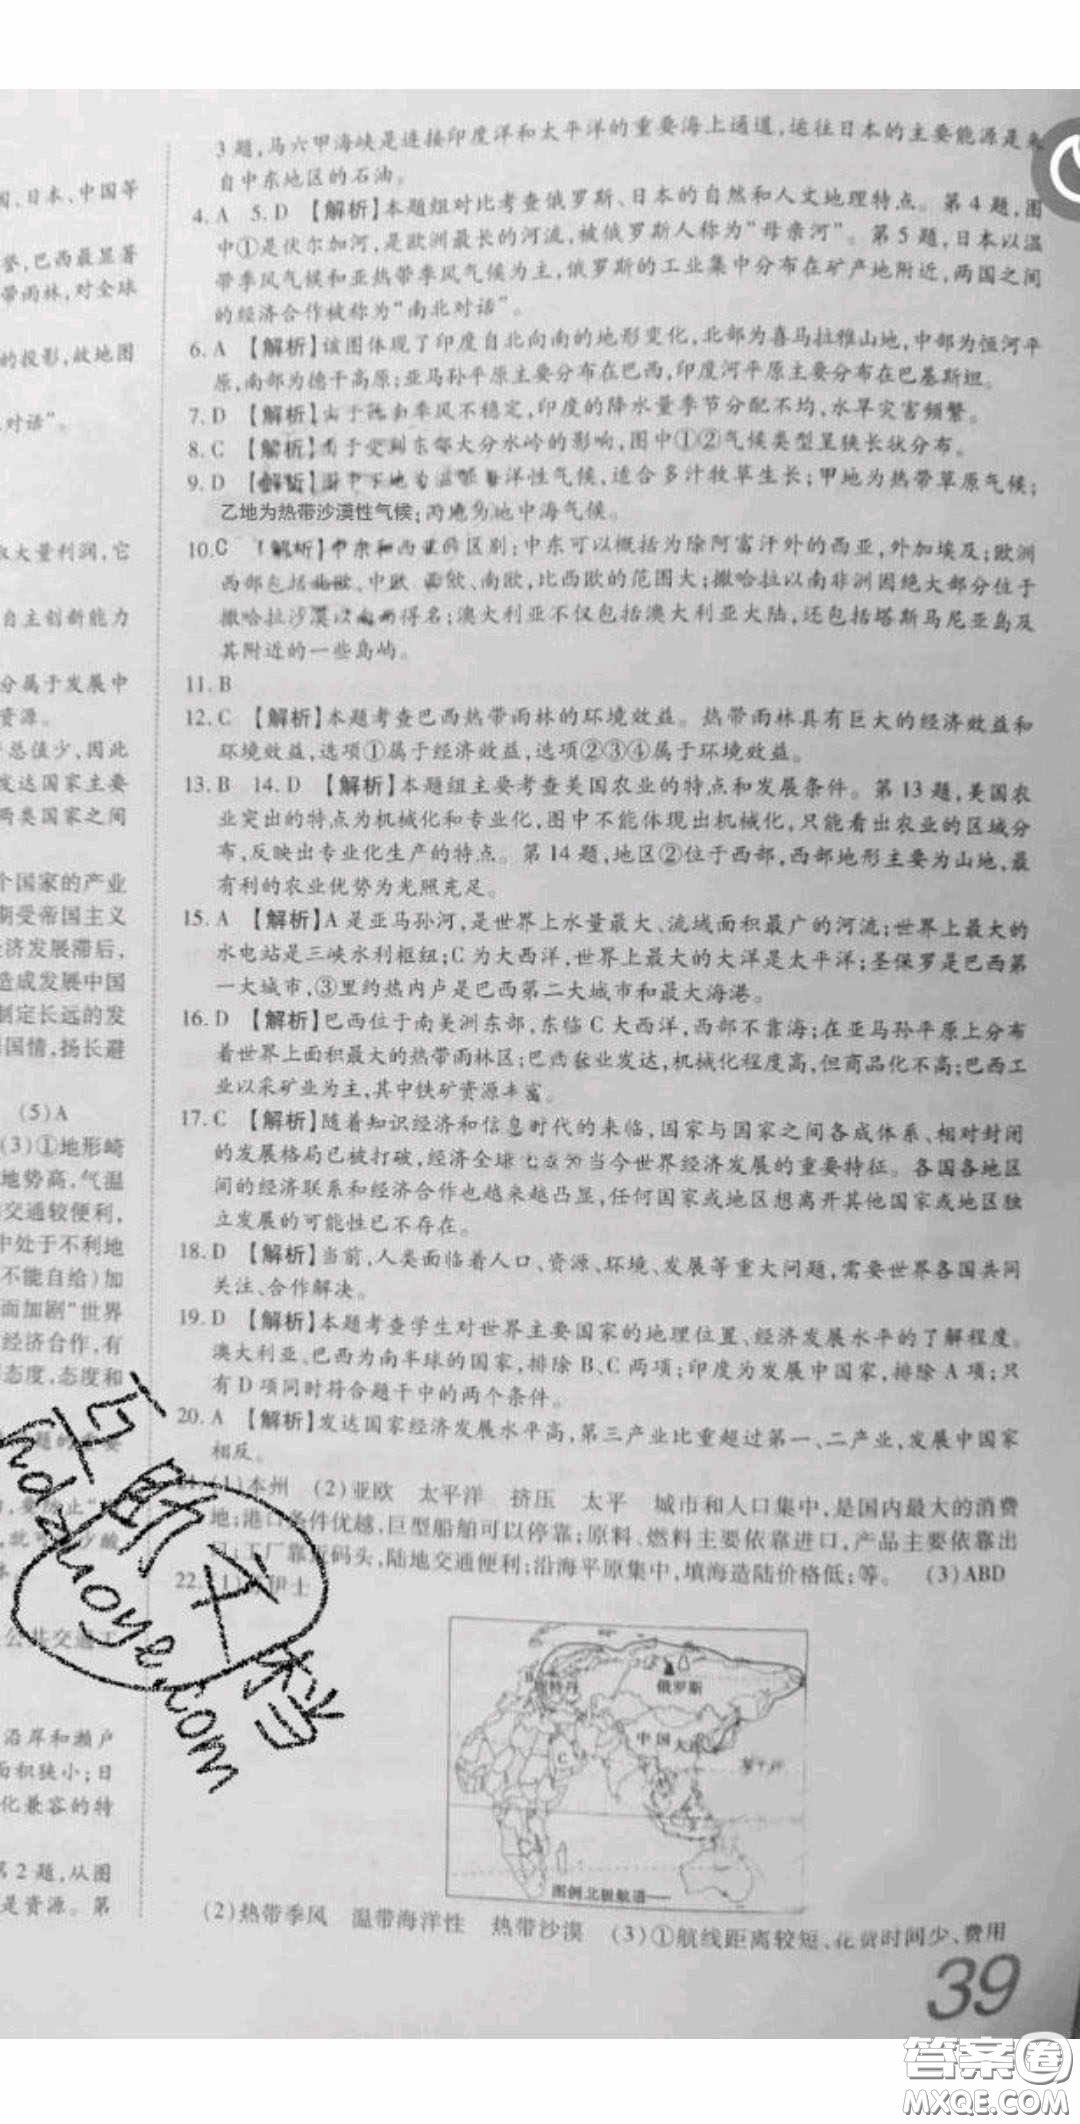 国、日本、中国等
誉,巴西最显著
带雨林,对全球
的投影,故地图
对话”。
取大量利润,它
自主创新能力
分属于发展中
资源。
总值少,因此
发达国家主要
两类国家之间
个国家的产业
期受帝国主义
经济发展滞后,
造成发展中国
制定长远的发
国情,扬长避
(5)A
(3)①地形崎
地势高,气温
交通较便利,
中处于不利地
不能自给)加
而加剧“世界
经济合作,有
态度,态度和
公共交通工
沿岸和濑户
面积狭小;日
化兼容的特
第2题,从图
是资源。第
3题,马六甲海峡是连接印度洋和太平洋的重要海上通道,运往日本的主要能源是来
自中东地区的石油。
4. A 5. D 【解析】本题组对比考查俄罗斯、日本的自然和人文地理特点。第4题,图
中①是伏尔加河,是欧洲最长的河流,被俄罗斯人称为“母亲河”。第5题,日本以温
带季风气候和亚热带季风气候为主,俄罗斯的工业集中分布在矿产地附近,两国之间
的经济合作被称为“南北对话”。
6. A 【解析】该图体现了印度自北向南的地形变化,北部为喜马拉雅山地,中部为恒河平
原,南部为德干高原;亚马孙平原主要分布在巴西,印度河平原主要分布在巴基斯坦。
7. D 【解析】由于西南季风不稳定,印度的降水量季节分配不均,水旱灾害频繁。
8. C 【解析】由于受到东部大分水岭的影响,图中①②气候类型呈狭长状分布。
9. D 【解析】图中丁地为温带海洋性气候,适合多汁牧草生长;甲地为热带草原气候;
乙地为热带沙漠性气候;丙地为地中海气候。
10. C 【解析】中东和西亚的区别:中东可以概括为除阿富汗外的西亚,外加埃及;欧洲
西部包括北欧、中欧、西欧、南欧,比西欧的范围大;撒哈拉以南非洲因绝大部分位于
撒哈拉沙漠以南而得名;澳大利亚不仅包括澳大利亚大陆,还包括塔斯马尼亚岛及
其附近的一些岛屿。
11. B
12. C 【解析】本题考查巴西热带雨林的环境效益。热带雨林具有巨大的经济效益和
环境效益,选项①属于经济效益,选项②③④属于环境效益。
13. B 14. D 【解析】本题组主要考查美国农业的特点和发展条件。第13题,美国农
业突出的特点为机械化和专业化,图中不能体现出机械化,只能看出农业的区域分
布,反映出专业化生产的特点。第14题,地区②位于西部,西部地形主要为山地,最
有利的农业优势为光照充足。
15. A 【解析】A是亚马孙河,是世界上水量最大、流域面积最广的河流;世界上最大的
水电站是三峡水利枢纽;C为大西洋,世界上最大的大洋是太平洋;圣保罗是巴西第
一大城市,③里约热内卢是巴西第二大城市和最大海港。
16. D 【解析】巴西位于南美洲东部,东临C大西洋,西部不靠海;在亚马孙平原上分布
着世界上面积最大的热带雨林区;巴西农业发达,机械化程度高,但商品化不高;巴西工
业以采矿业为主,其中铁矿资源丰富。
17. C 【解析】随着知识经济和信息时代的来临,国家与国家之间各成体系、相对封闭
的发展格局已被打破,经济全球化成为当今世界经济发展的重要特征。各国各地区
间的经济联系和经济合作也越来越凸显,任何国家或地区想离开其他国家或地区独
立发展的可能性已不存在。
18. D 【解析】当前,人类面临着人口、资源、环境、发展等重大问题,需要世界各国共同
关注、合作解决。
19. D 【解析】本题考查学生对世界主要国家的地理位置、经济发展水平的了解程度。
澳大利亚、巴西为南半球的国家,排除B、C两项;印度为发展中国家,排除A项;只
有D项同时符合题干中的两个条件。
20. A 【解析】发达国家经济发展水平高,第三产业比重超过第一、二产业,发展中国家
相反。
(1)本州 (2)亚欧 太平洋 挤压 太平 城市和人口集中,是国内最大的消费
地;港口条件优越,巨型船舶可以停靠;原料、燃料主要依靠进口,产品主要依靠出
口;工厂靠近码头,陆地交通便利;沿海平原集中,填海造陆价格低;等。 (3)ABD
22.
俄罗斯
中国
大连
C
图例 北极航道
(2)热带季风 温带海洋性 热带沙漠 (3)①航线距离较短、花费时间少、费用
39
互助文档
hdzuoye.com
答案圈
MXQE.COM